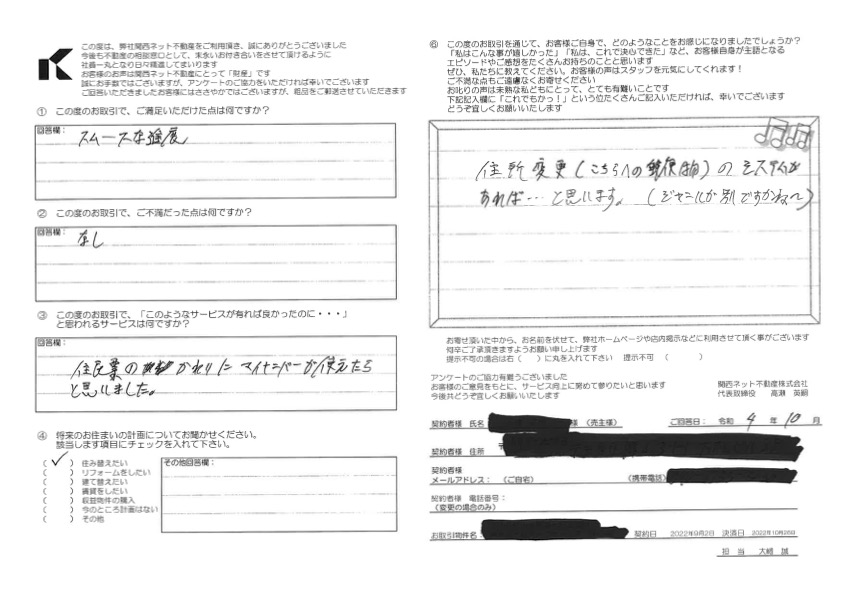 この度は、弊社関西ネット不動産をご利用頂き、誠にありがとうございました
今後も不動産の相談窓口として、末永いお付き合いをさせて頂けるように
社員一丸となり日々精進してまいります
お客様のお声は関西ネット不動産にとって「財産」です
誠にお手数ではございますが、アンケートのご協力をいただければ幸いでございます
ご回答いただきましたお客様にはささやかではございますが、粗品をご郵送させていただきます
① この度のお取引で、ご満足いただけた点は何ですか？
回答欄：
スムーズな進展
② この度のお取引で、ご不満だった点は何ですか？
回答欄：
なし
③ この度のお取引で、「このようなサービスが有れば良かったのに・・・」
と思われるサービスは何ですか？
回答欄：
住民票の かわりに マイナンバーが使えたら
と思いました。
④ 将来のお住まいの計画についてお聞かせください。
該当します項目にチェックを入れて下さい。
（✓）住み替えたい
（ ）リフォームをしたい
（ ）建て替えたい
（ ）賃貸をしたい
（ ）収益物件の購入
（ ）今のところ計画はない
（ ）その他
その他回答欄：
⑥ この度のお取引を通じて、お客様ご自身で、どのようなことをお感じになりましたでしょうか？
「私はこんな事が嬉しかった」「私は、これで決心できた」など、お客様自身が主語となる
エピソードやご感想をたくさんお持ちのことと思います
ぜひ、私たちに教えてください。お客様の声はスタッフを元気にしてくれます！
ご不満な点もご遠慮なくお寄せください
お叱りの声は未熟な私どもにとって、とても有難いことです
下記記入欄に「これでもかっ！」という位たくさんご記入いただければ、幸いでございます
どうぞ宜しくお願いいたします
住所変更（こちらへの郵便物）の システムが
あれば… と思います。（ジャンルが別ですかね〜）
お寄せ頂いた中から、お名前を伏せて、弊社ホームページや店内掲示などに利用させて頂く事がございます
何卒ご了承頂きますようお願い申し上げます
提示不可の場合は右（ ）に丸を入れて下さい 提示不可（ ）
アンケートのご協力有難うございました
お客様のご意見をもとに、サービス向上に努めて参りたいと思います
今後共どうぞ宜しくお願いいたします
関西ネット不動産株式会社
代表取締役 高瀬 英嗣
契約者様 氏名 様（売主様） ご回答日： 令和 4 年 10 月
契約者様 住所
契約者様
メールアドレス： （ご自宅） （携帯電話）
契約者様 電話番号：
（変更の場合のみ）
お取引物件名： 契約日 2022年9月2日 決済日 2022年10月26日
担 当 大崎 誠